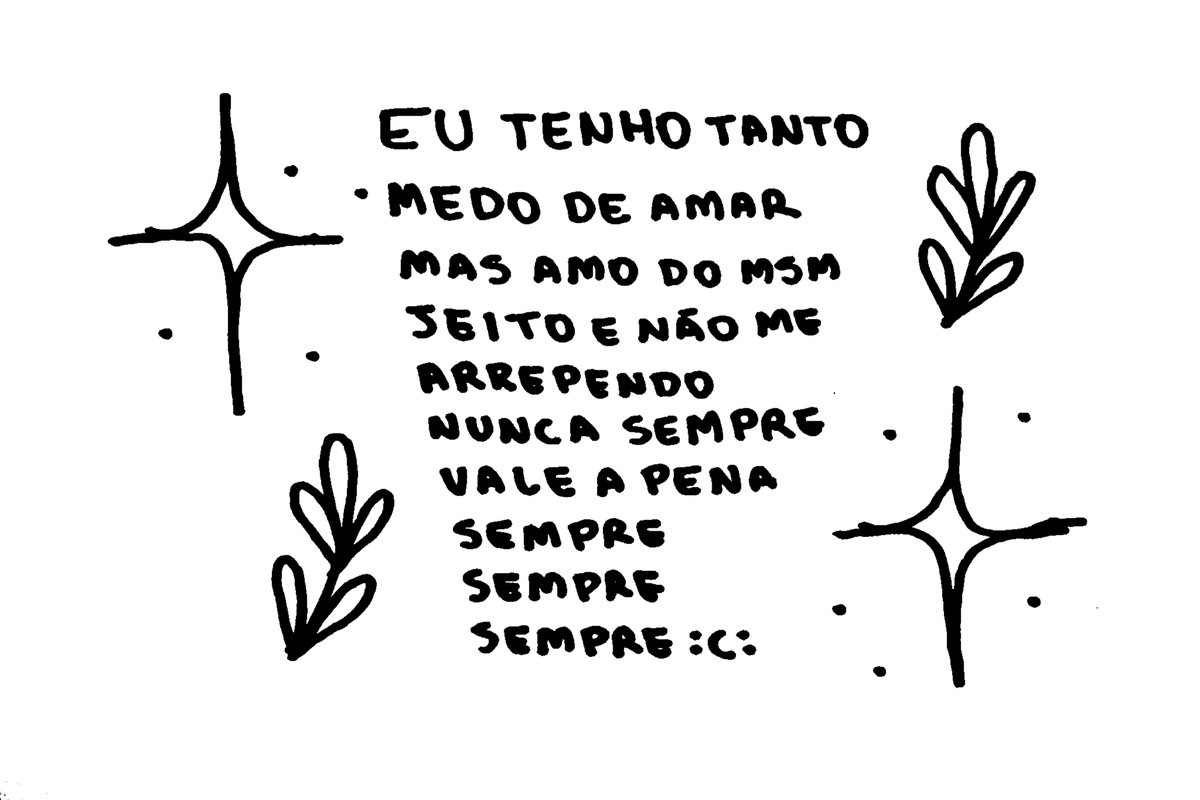 EU TENHO TANTO
MEDO DE AMAR
MAS AMO DO MSM
JEITO E NÃO ME
ARREPENDO
NUNCA SEMPRE
VALE A PENA
SEMPRE
SEMPRE
SEMPRE :C: